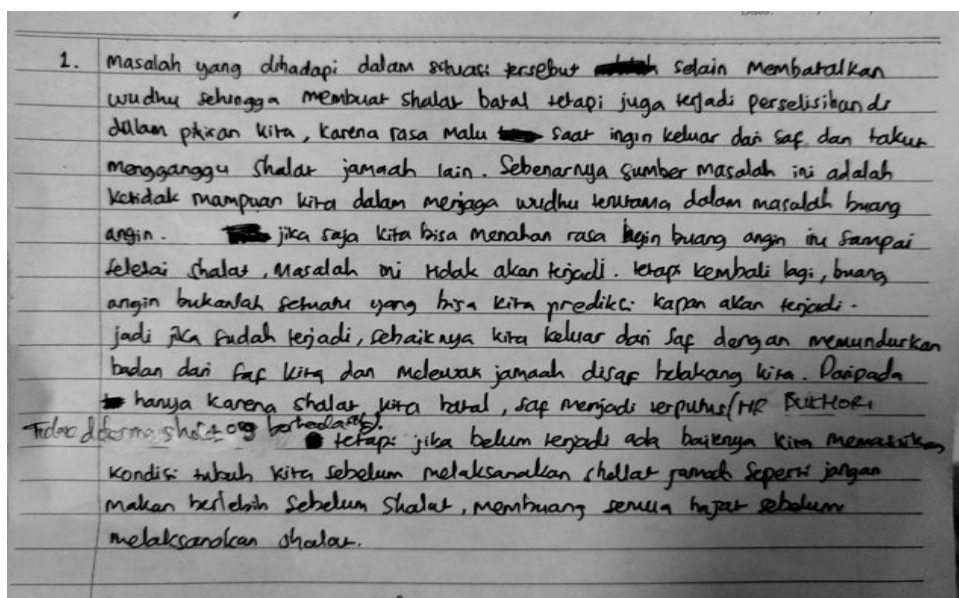 1. Masalah yang dihadapi dalam situasi tersebut selain membatalkan
wudhu sehingga membuat shalat batal tetapi juga terjadi perselisihan di
dalam pikiran kita, karena rasa malu saat ingin keluar dari saf dan takut
mengganggu shalat jamaah lain. Sebenarnya sumber masalah ini adalah
ketidak mampuan kita dalam menjaga wudhu terutama dalam masalah buang
angin. jika saja kita bisa menahan rasa ingin buang angin itu sampai
selesai shalat, masalah ini tidak akan terjadi. tetapi kembali lagi, buang
angin bukanlah sesuatu yang bisa kita prediksi kapan akan terjadi.
jadi jika sudah terjadi, sebaiknya kita keluar dari saf dengan memundurkan
badan dari saf kita dan melewati jamaah disaf belakang kita. Daripada
hanya karena shalat kita batal, saf menjadi terputus (HR BUKHORI
Tidak diterima shalat org berhadats).
tetapi jika belum terjadi ada baiknya kita memastikan
kondisi tubuh kita sebelum melaksanakan shallat jamaah seperti jangan
makan berlebih sebelum shalat, membuang semua hajat sebelum
melaksanakan shalat.